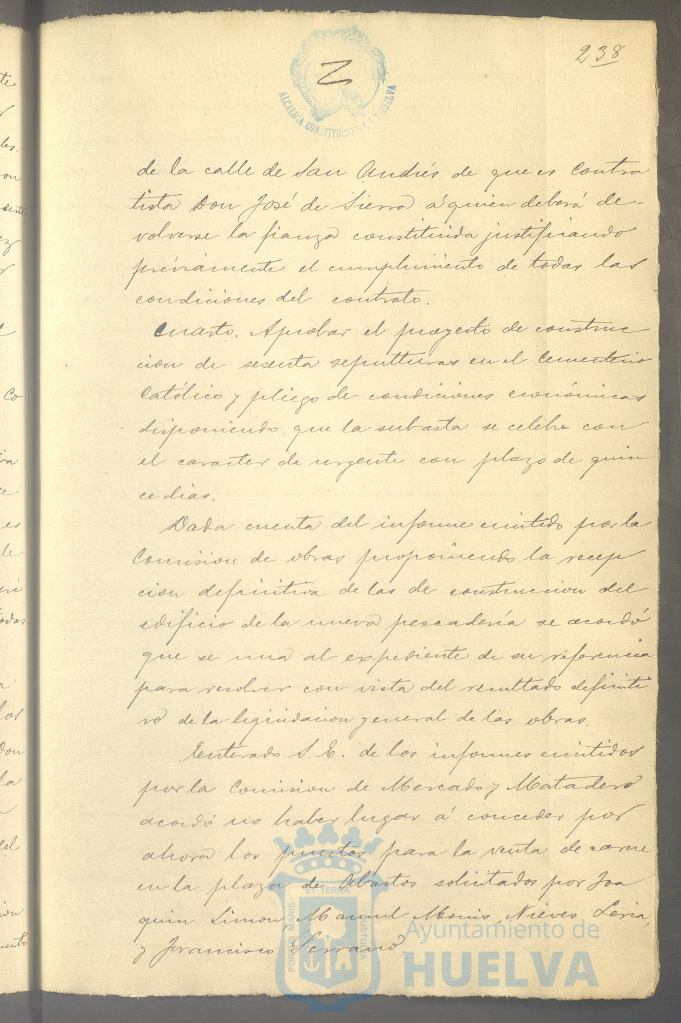 238
ALCALDIA CONSTITUCIONAL DE HUELVA
de la calle de San Andrés de que es Contra
tista Don José de Sierra á quien deberá de-
volverse la fianza constituida justificando
préviamente el cumplimiento de todas las
condiciones del contrato.
Cuarto. Aprobar el proyecto de construc
cion de sesenta sepulturas en el Cementerio
Católico y pliego de condiciones económicas
disponiendo que la subasta se celebre con
el caracter de urgente con plazo de quin
ce dias.
Dada cuenta del informe emitido por la
Comision de obras proponiendo la recep
cion definitiva de las de construccion del
edificio de la nueva pescadería se acordó
que se una al expediente de su referencia
para resolver con vista del resultado definiti
vo de la liquidacion general de las obras.
Enterado S. E. de los informes emitidos
por la Comision de Mercado y Matadero
acordó no haber lugar á conceder por
ahora los puestos para la venta de carne
en la plaza de Abastos solicitados por Joa
quin Limon, Manuel Nieves
y Francisco Serrano
PORTUS MARIS ET TERRAE CUSTODIA
Ayuntamiento de
HUELVA